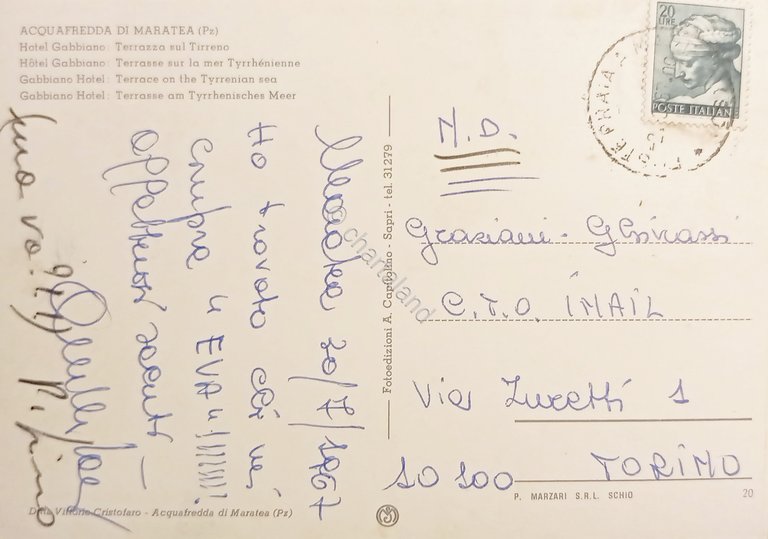 ACQUAFREDDA DI MARATEA (Pz)
Hotel Gabbiano: Terrazza sul Tirreno
Hôtel Gabbiano: Terrasse sur la mer Tyrrhénienne
Gabbiano Hotel: Terrace on the Tyrrenian sea
Gabbiano Hotel: Terrasse am Tyrrhenisches Meer
20 LIRE
POSTE ITALIANE
Maratea 20/7/1967
Ho trovato chi mi
compra 4 EVA 4 !!!!!!!
Affettuosi saluti
Fotoedizioni A. Capitolino - Sapri - tel. 31279
N.D.
Graziani - Ghirassi
C.T.O. IMAIL
Via Zuretti 1
10100 TORINO
P. MARZARI S.R.L. SCHIO
20
Ditta Vittorio Cristofaro - Acquafredda di Maratea (Pz)
chartaland